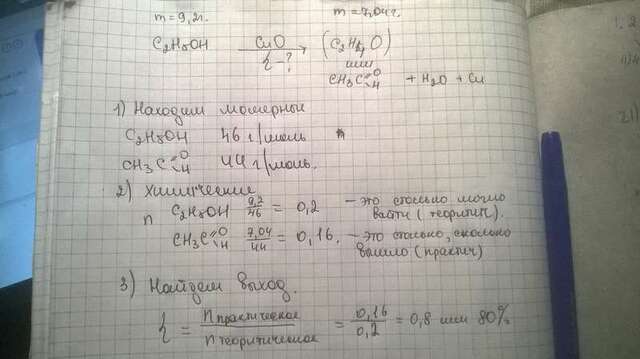 m = 9,2г. m = 7,04г.
C2H5OH CuO → (C2H4O)
η - ? или
CH3C=O-H + H2O + Cu
1) Находим молярные
C2H5OH 46 г/моль
CH3C=O-H 44 г/моль.
2) Химические
n C2H5OH 9,2/46 = 0,2 - это столько могло
выйти (теоритич).
CH3C=O-H 7,04/44 = 0,16. - это столько, сколько
вышло (практич)
3) Найдем выход.
η = n практическое / n теоритическое = 0,16/0,2 = 0,8 или 80%